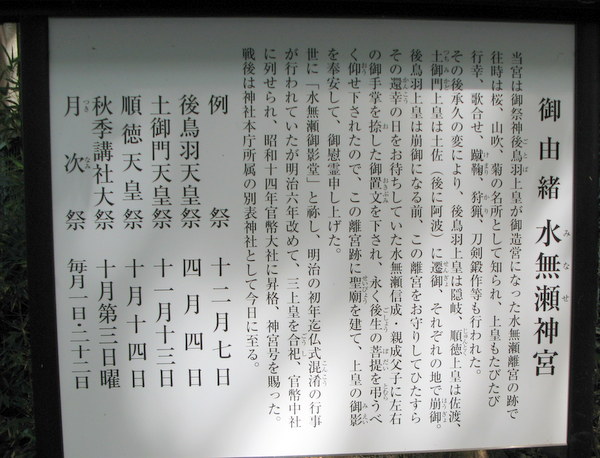 御由緒 水無瀬神宮
当宮は御祭神後鳥羽上皇が御造営になった水無瀬離宮の跡で
往時は桜、山吹、菊の名所として知られ、上皇もたびたび
行幸、歌合せ、蹴鞠、狩猟、刀剣鍛作等も行われた。
その後承久の変により、後鳥羽上皇は隠岐、順徳上皇は佐渡、
土御門上皇は土佐（後に阿波）に遷御、それぞれの地で崩御。
後鳥羽上皇は崩御になる前、この離宮をお守りしてひたすら
その還幸の日をお待ちしていた水無瀬信成・親成父子に左右
の御手掌を捺した御置文を下され、永く後生の菩提を弔うべ
く仰せ下されたので、この離宮跡に聖廟を建て、上皇の御影
を奉安して、御慰霊申し上げた。
世に「水無瀬御影堂」と称し、明治の初年迄仏式混淆の行事
が行われていたが明治六年改めて、三上皇を合祀、官幣中社
に列せられ、昭和十四年官幣大社に昇格、神宮号を賜った。
戦後は神社本庁所属の別表神社として今日に至る。
例祭 十二月七日
後鳥羽天皇祭 四月四日
土御門天皇祭 十一月十三日
順徳天皇祭 十月十四日
秋季講社大祭 十月第三日曜
月次祭 毎月一日・二十二日